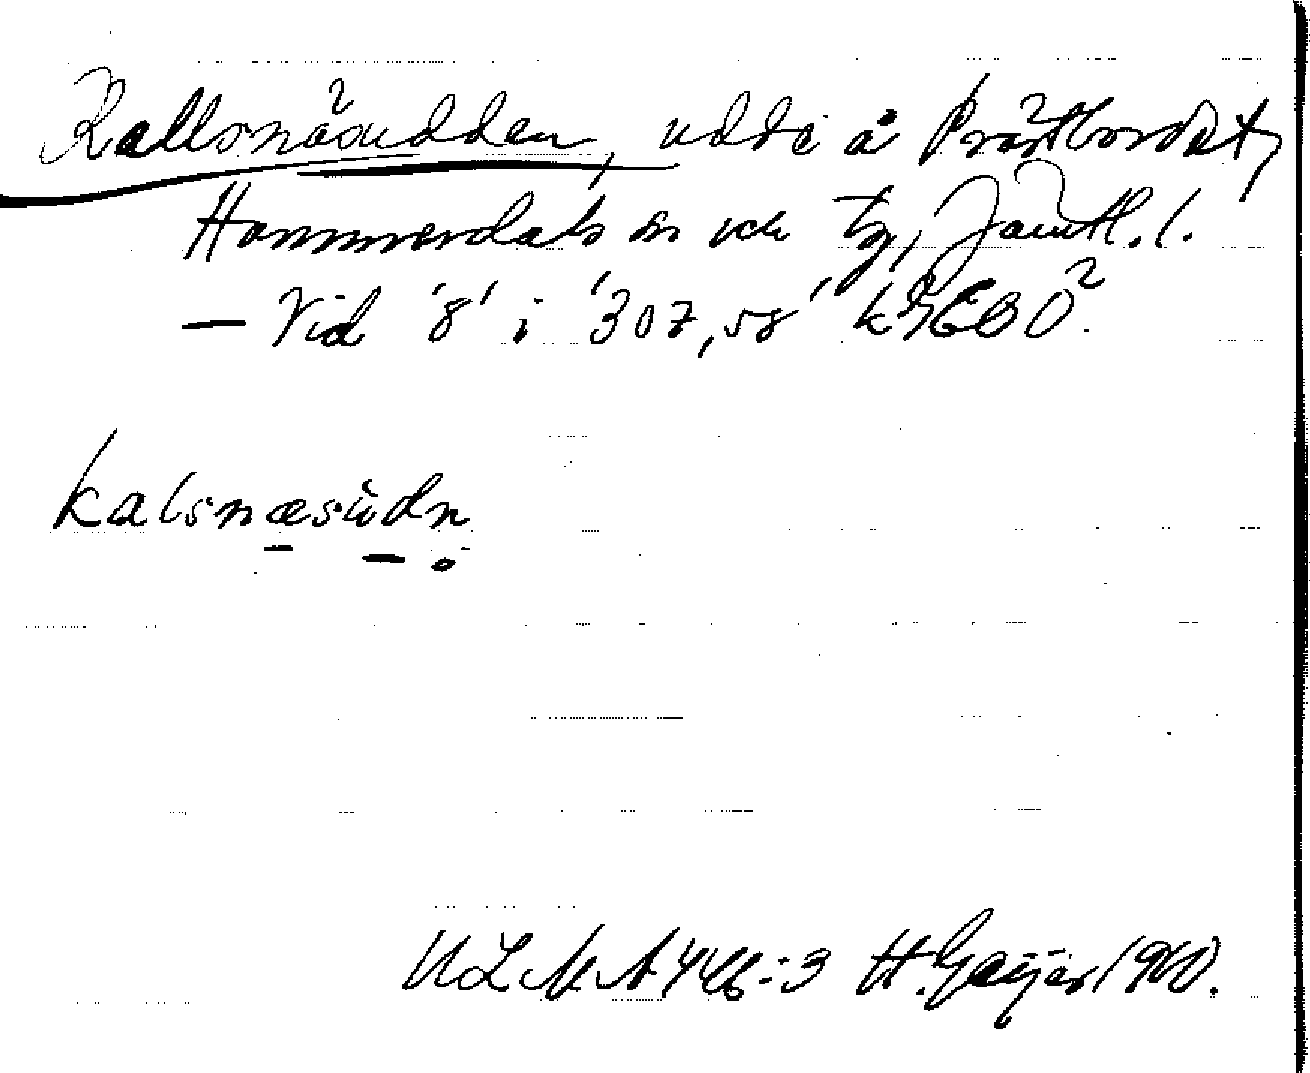 Kallsnäsudden, udde å Prästbordet,
Hammerdals sn och tg, Jämtl. l.
– Vid '8' i '307,58'
kalsnæsùdn
ULMA 446:3 H. Geijer 1900.